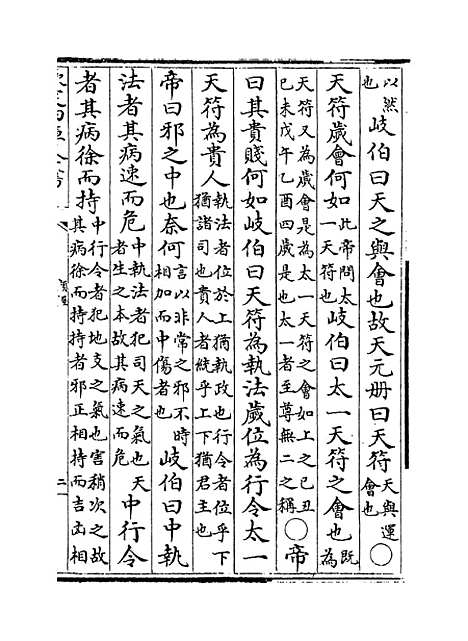 以然也岐伯曰天之與會也故天元冊曰天符天與運會也○
天符歲會何如此帝問太一天符也岐伯曰太一天符之會也既為
天符又為歲會是為太一天符之會如上之已丑
已未戊午乙酉四歲是也太一者至尊無二之稱○帝
曰其貴賤何如岐伯曰天符為執法歲位為行令太一
天符為貴人執法者位於上猶執政也行令者位乎下
猶諸司也貴人者統乎上下猶君主也
帝曰邪之中也奈何言以非常之邪不時相加而中傷者也岐伯曰中執
法者其病速而危中執法者犯司天之氣也天者生之本故其病速而危中行令
者其病徐而持中行令者犯地支之氣也害稍次之故
其病徐而持持者邪正相持而吉凶相